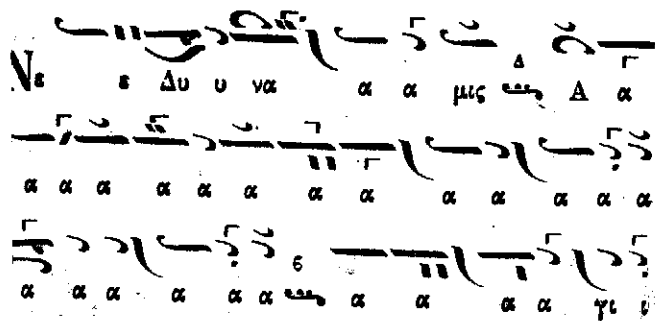 Νε ε Δυ υ να α α μις Δ Α α
α α α α α α α α α α α α α
α α α α α α ϐ α α α α γι ι